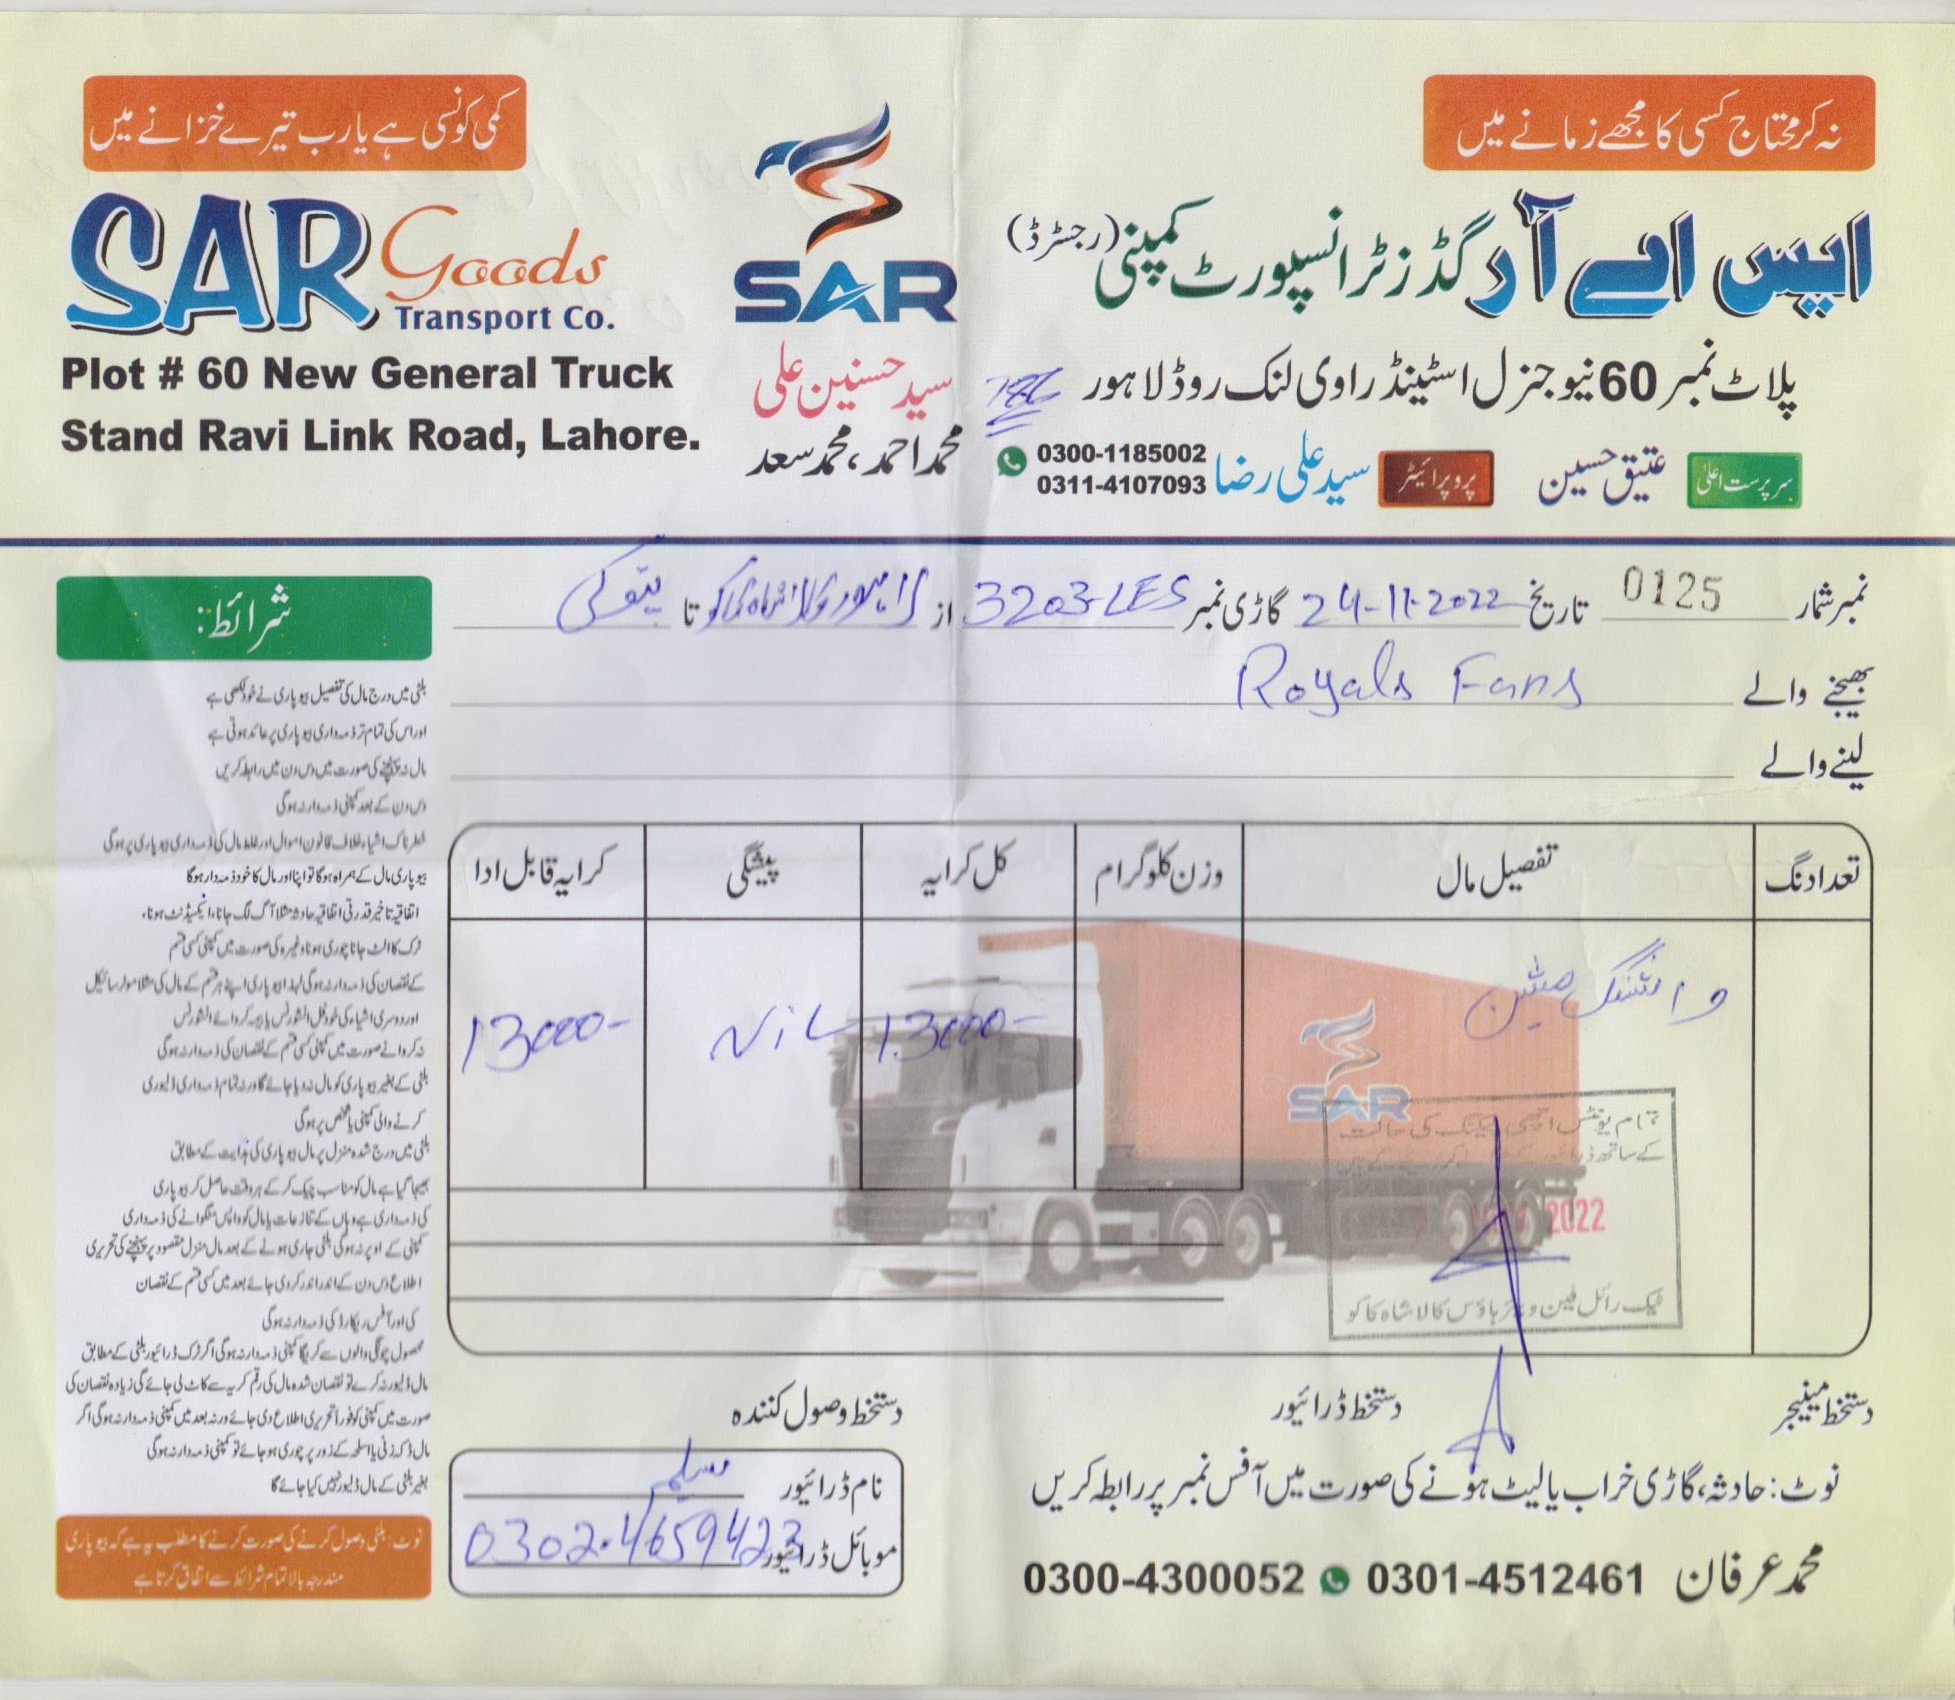 نہ کر محتاج کسی کا مجھے زمانے میں
کمی کونسی ہے یارب تیرے خزانے میں
ایس اے آر گڈز ٹرانسپورٹ کمپنی (رجسٹرڈ)
SAR
SAR Goods
Transport Co.
پلاٹ نمبر 60 نیو جنرل اسٹینڈ راوی لنک روڈ لاہور
786
سید حسنین علی
محمد احمد، محمد سعد
Plot # 60 New General Truck
Stand Ravi Link Road, Lahore.
سرپرست اعلیٰ عتیق حسین پروپرائیٹر سید علی رضا
0300-1185002
0311-4107093
نمبر شمار 0125 تاریخ 24-11-2022 گاڑی نمبر 3203-LES از لاہور تا پتوکی
بھیجنے والے Royals Fans
لینے والے
تعداد نگ تفصیل مال وزن کلوگرام کل کرایہ پیشگی کرایہ قابل ادا
واشنگ مشین 13000- NiL 13000-
SAR
تمام یونٹس اچھی پیکنگ کی حالت
کے ساتھ
2022
ٹیک رائل فین ویئر ہاؤس کالا شاہ کاکو
دستخط مینیجر دستخط ڈرائیور دستخط وصول کنندہ
نوٹ: حادثہ، گاڑی خراب یا لیٹ ہونے کی صورت میں آفس نمبر پر رابطہ کریں
محمد عرفان 0301-4512461 0300-4300052
نام ڈرائیور سلیم
موبائل ڈرائیور 0302-4659423
شرائط:
بلٹی میں درج مال کی تفصیل بیوپاری نے خود لکھی ہے
اور اس کی تمام تر ذمہ داری بیوپاری پر عائد ہوتی ہے
مال نہ پہنچنے کی صورت میں دس دن میں رابطہ کریں
دس دن کے بعد کمپنی ذمہ دار نہ ہوگی
خطرناک اشیاء خلاف قانون اموال اور غلط مال کی ذمہ داری بیوپاری پر ہوگی
بیوپاری مال کے ہمراہ ہوگا تو اپنا اور مال کا خود ذمہ دار ہوگا
اتفاقیہ تاخیر قدرتی اتفاقیہ حادثہ مثلا آگ لگ جانا، ایکسیڈنٹ ہونا،
ٹرک کا الٹ جانا چوری ہونا وغیرہ کی صورت میں کمپنی کسی قسم
کے نقصان کی ذمہ دار نہ ہوگی لہذا بیوپاری اپنے ہر قسم کے مال کی مثلا موٹر سائیکل
اور دوسری اشیاء کی خود فل انشورنس یا بیمہ کروائے انشورنس
نہ کروانے صورت میں کمپنی کسی قسم کے نقصان کی ذمہ دار نہ ہوگی
بلٹی کے بغیر بیوپاری کو مال نہ دیا جائے گا ورنہ تمام ذمہ داری ڈلیوری
کرنے والی کمپنی یا شخص پر ہوگی
بلٹی میں درج شدہ منزل پر مال بیوپاری کی ہدایت کے مطابق
بھیجا گیا ہے مال کو مناسب چیک کر کے بروقت حاصل کر بیوپاری
کی ذمہ داری ہے وہاں کے تنازعات یا مال کو واپس منگوانے کی ذمہ داری
کمپنی کے اوپر نہ ہوگی بلٹی جاری ہونے کے بعد مال منزل مقصود پر پہنچنے کی تحریری
اطلاع دس دن کے اندر اندر کر دی جائے بعد میں کسی قسم کے نقصان
کی اور آفس ریکارڈ کی ذمہ دار نہ ہوگی
محصول چونگی والوں سے کمپنی ذمہ دار نہ ہوگی اگر ٹرک ڈرائیور بلٹی کے مطابق
مال ڈلیور نہ کرے تو نقصان شدہ مال کی رقم کرایہ سے کاٹ لی جائے گی زیادہ نقصان کی
صورت میں کمپنی کو فورا تحریری اطلاع دی جائے ورنہ بعد میں کمپنی ذمہ دار نہ ہوگی اگر
مال ڈکہ زنی یا اسلحہ کے زور پر چوری ہو جائے تو کمپنی ذمہ دار نہ ہوگی
بغیر بلٹی کے مال ڈلیور نہیں کیا جائے گا
نوٹ: بلٹی وصول کرنے کی صورت کرنے کا مطلب یہ ہے کہ بیوپاری
مندرجہ بالا تمام شرائط سے اتفاق کرتا ہے